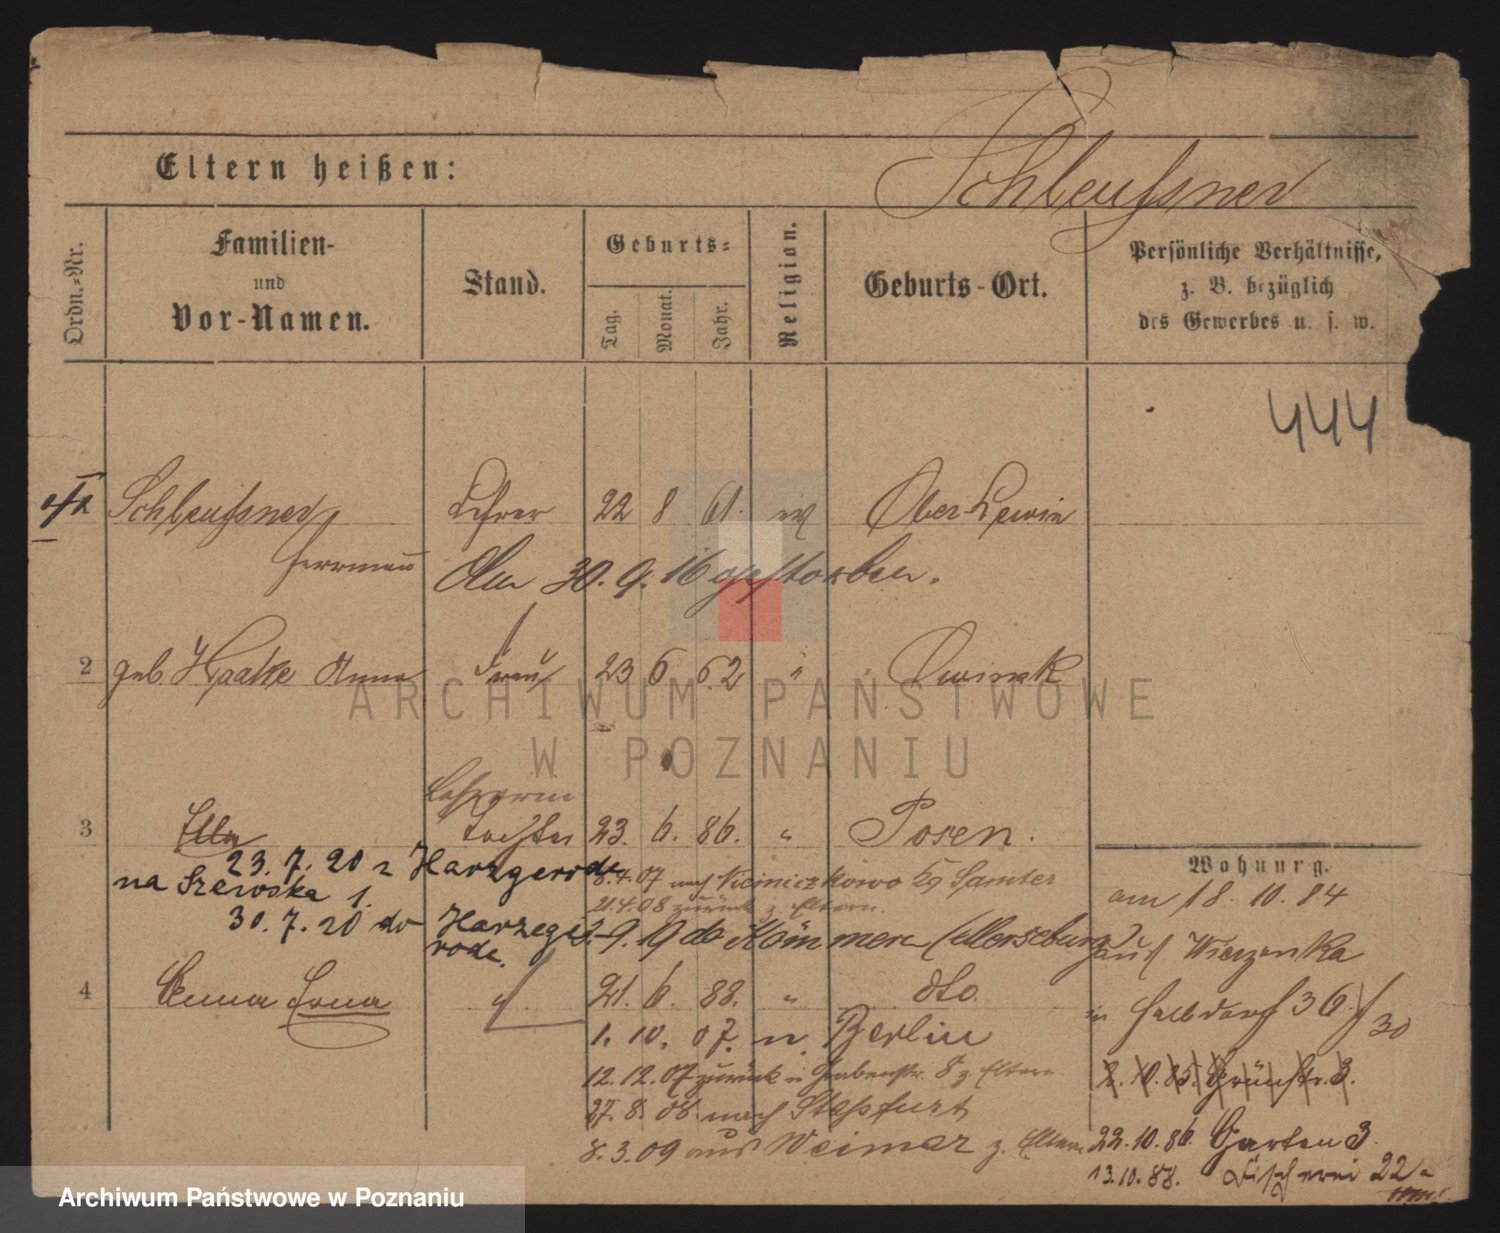 Schleussner
Eltern heißen:
Ordn.-Nr.
Familien-
und
Vor-Namen.
Stand.
Geburts-
Tag.
Monat.
Jahr.
Religion.
Geburts-Ort.
Persönliche Verhältnisse,
z. B. bezüglich
des Gewerbes u. s. w.
444
Schleussner, Lehrer 22 8 61. ev Ober-Lewin
Herrmann Am 30. 9. 16 gestorben.
2 geb. Haake Anna Frau 23 6 62 "
Lehrerin
3 Ella Tochter 23. 6. 86. " Posen.
23. 7. 20 n Harzgerode
na Szewska 1.
8.4.07 nach Samter
21.4.08 zurück z. Eltern.
30. 7. 20 do Harzegerode.
9. 19 do Kömmern (Merseburg)
4 Anna Erna " 21. 6. 88. " dto.
1. 10. 07. n. Berlin
12.12.07 zurück n Grabenstr. 8 z Eltern
27. 8. 08. nach Stassfurt
8. 3. 09 aus Weimar z. Eltern
Wohnung.
am 18. 10. 84
aus Wierzonka
in Halbdorf 36. / 30
2. 10. 85. Grünstr. 3.
22. 10. 86. Garten 3.
13. 10. 88. Fischerei 22
ARCHIWUM PAŃSTWOWE
W POZNANIU
Archiwum Państwowe w Poznaniu